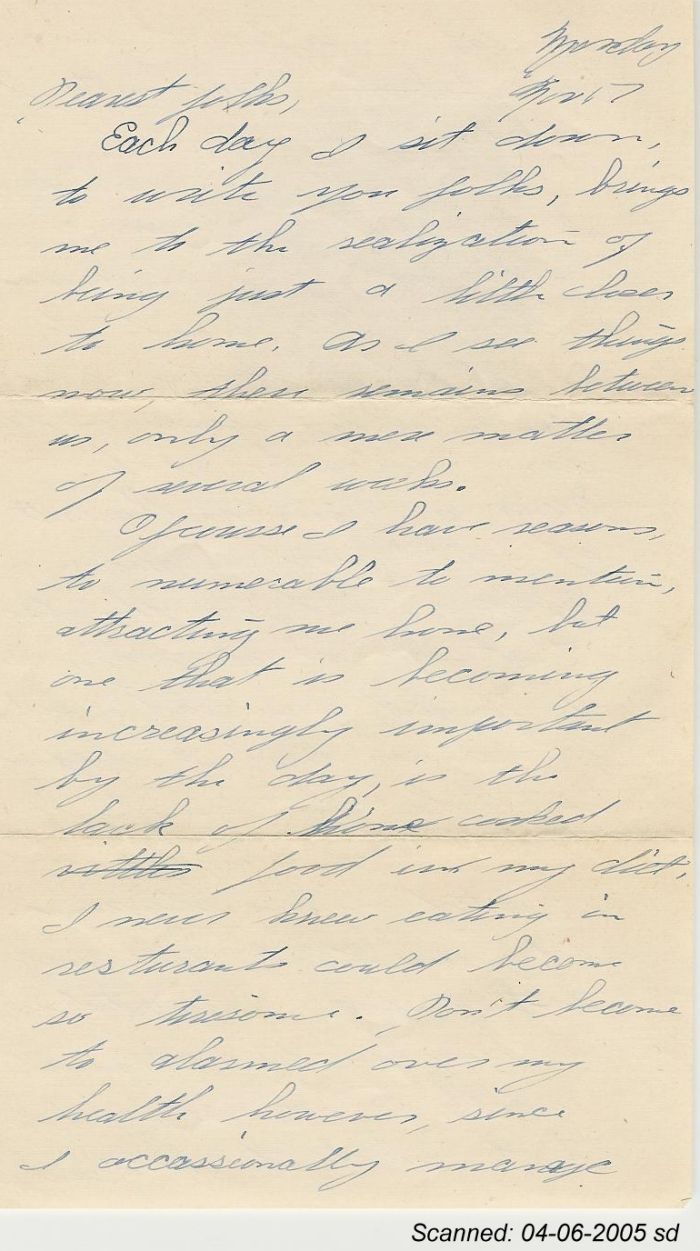 Monday
Nov 17
Dearest folks,
Each day I sit down,
to write you folks, brings
me to the realization of
being just a little closer
to home. As I see things
now, there remains between
us, only a mere matter
of several weeks.
Ofcourse I have reasons,
to numerable to mention,
attracting me home, but
one that is becoming
increasingly important
by the day, is the
lack of home cooked
vittles food in my diet.
I never knew eating in
resturants could become
so tiresome. Don't become
to alarmed over my
health however, since
I occassionally manage
Scanned: 04-06-2005 sd